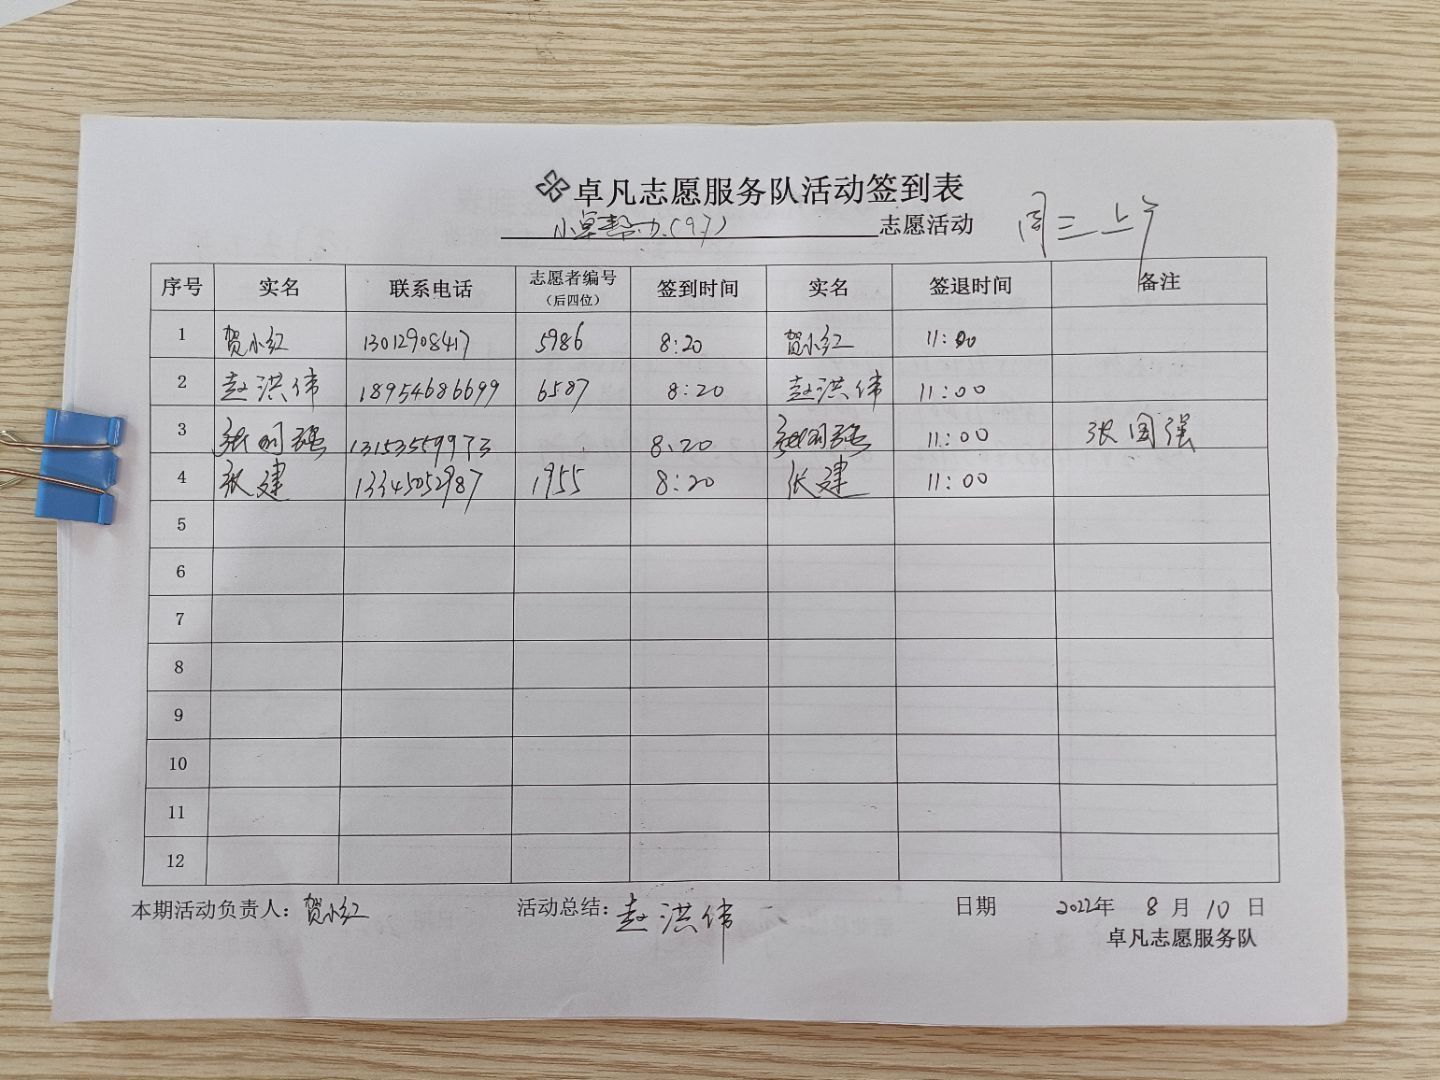 卓凡志愿服务队活动签到表
小卓帮办(97) 志愿活动 周三上午
序号 实名 联系电话 志愿者编号(后四位) 签到时间 实名 签退时间 备注
1 贺小红 13012908417 5986 8:20 贺小红 11:00
2 赵洪伟 18954686699 6587 8:20 赵洪伟 11:00
3 张国强 13153559973 8:20 张国强 11:00 张国强
4 张建 13345052987 1955 8:20 张建 11:00
5
6
7
8
9
10
11
12
本期活动负责人：贺小红 活动总结：赵洪伟 日期 2022年 8月10日
卓凡志愿服务队